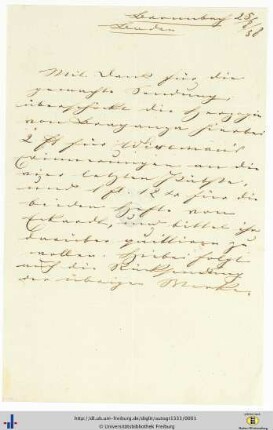 25/9 58
Mit Dank für die
gemachte Sendung,
überschickt die Herzogin
von Braganza hierbei
2 fl für Wiseman's
Erinnerungen an die
vier letzten Päbste,
und 1 fl. 12 xr für die
beiden Hefte von
Eckardt, und bittet ihr
darüber quittiren zu
wollen. Hiebei folgt
auch die Rücksendung
der übrigen Werke.
http://dl.ub.uni-freiburg.de/diglit/autogr1551/0001
© Universitätsbibliothek Freiburg